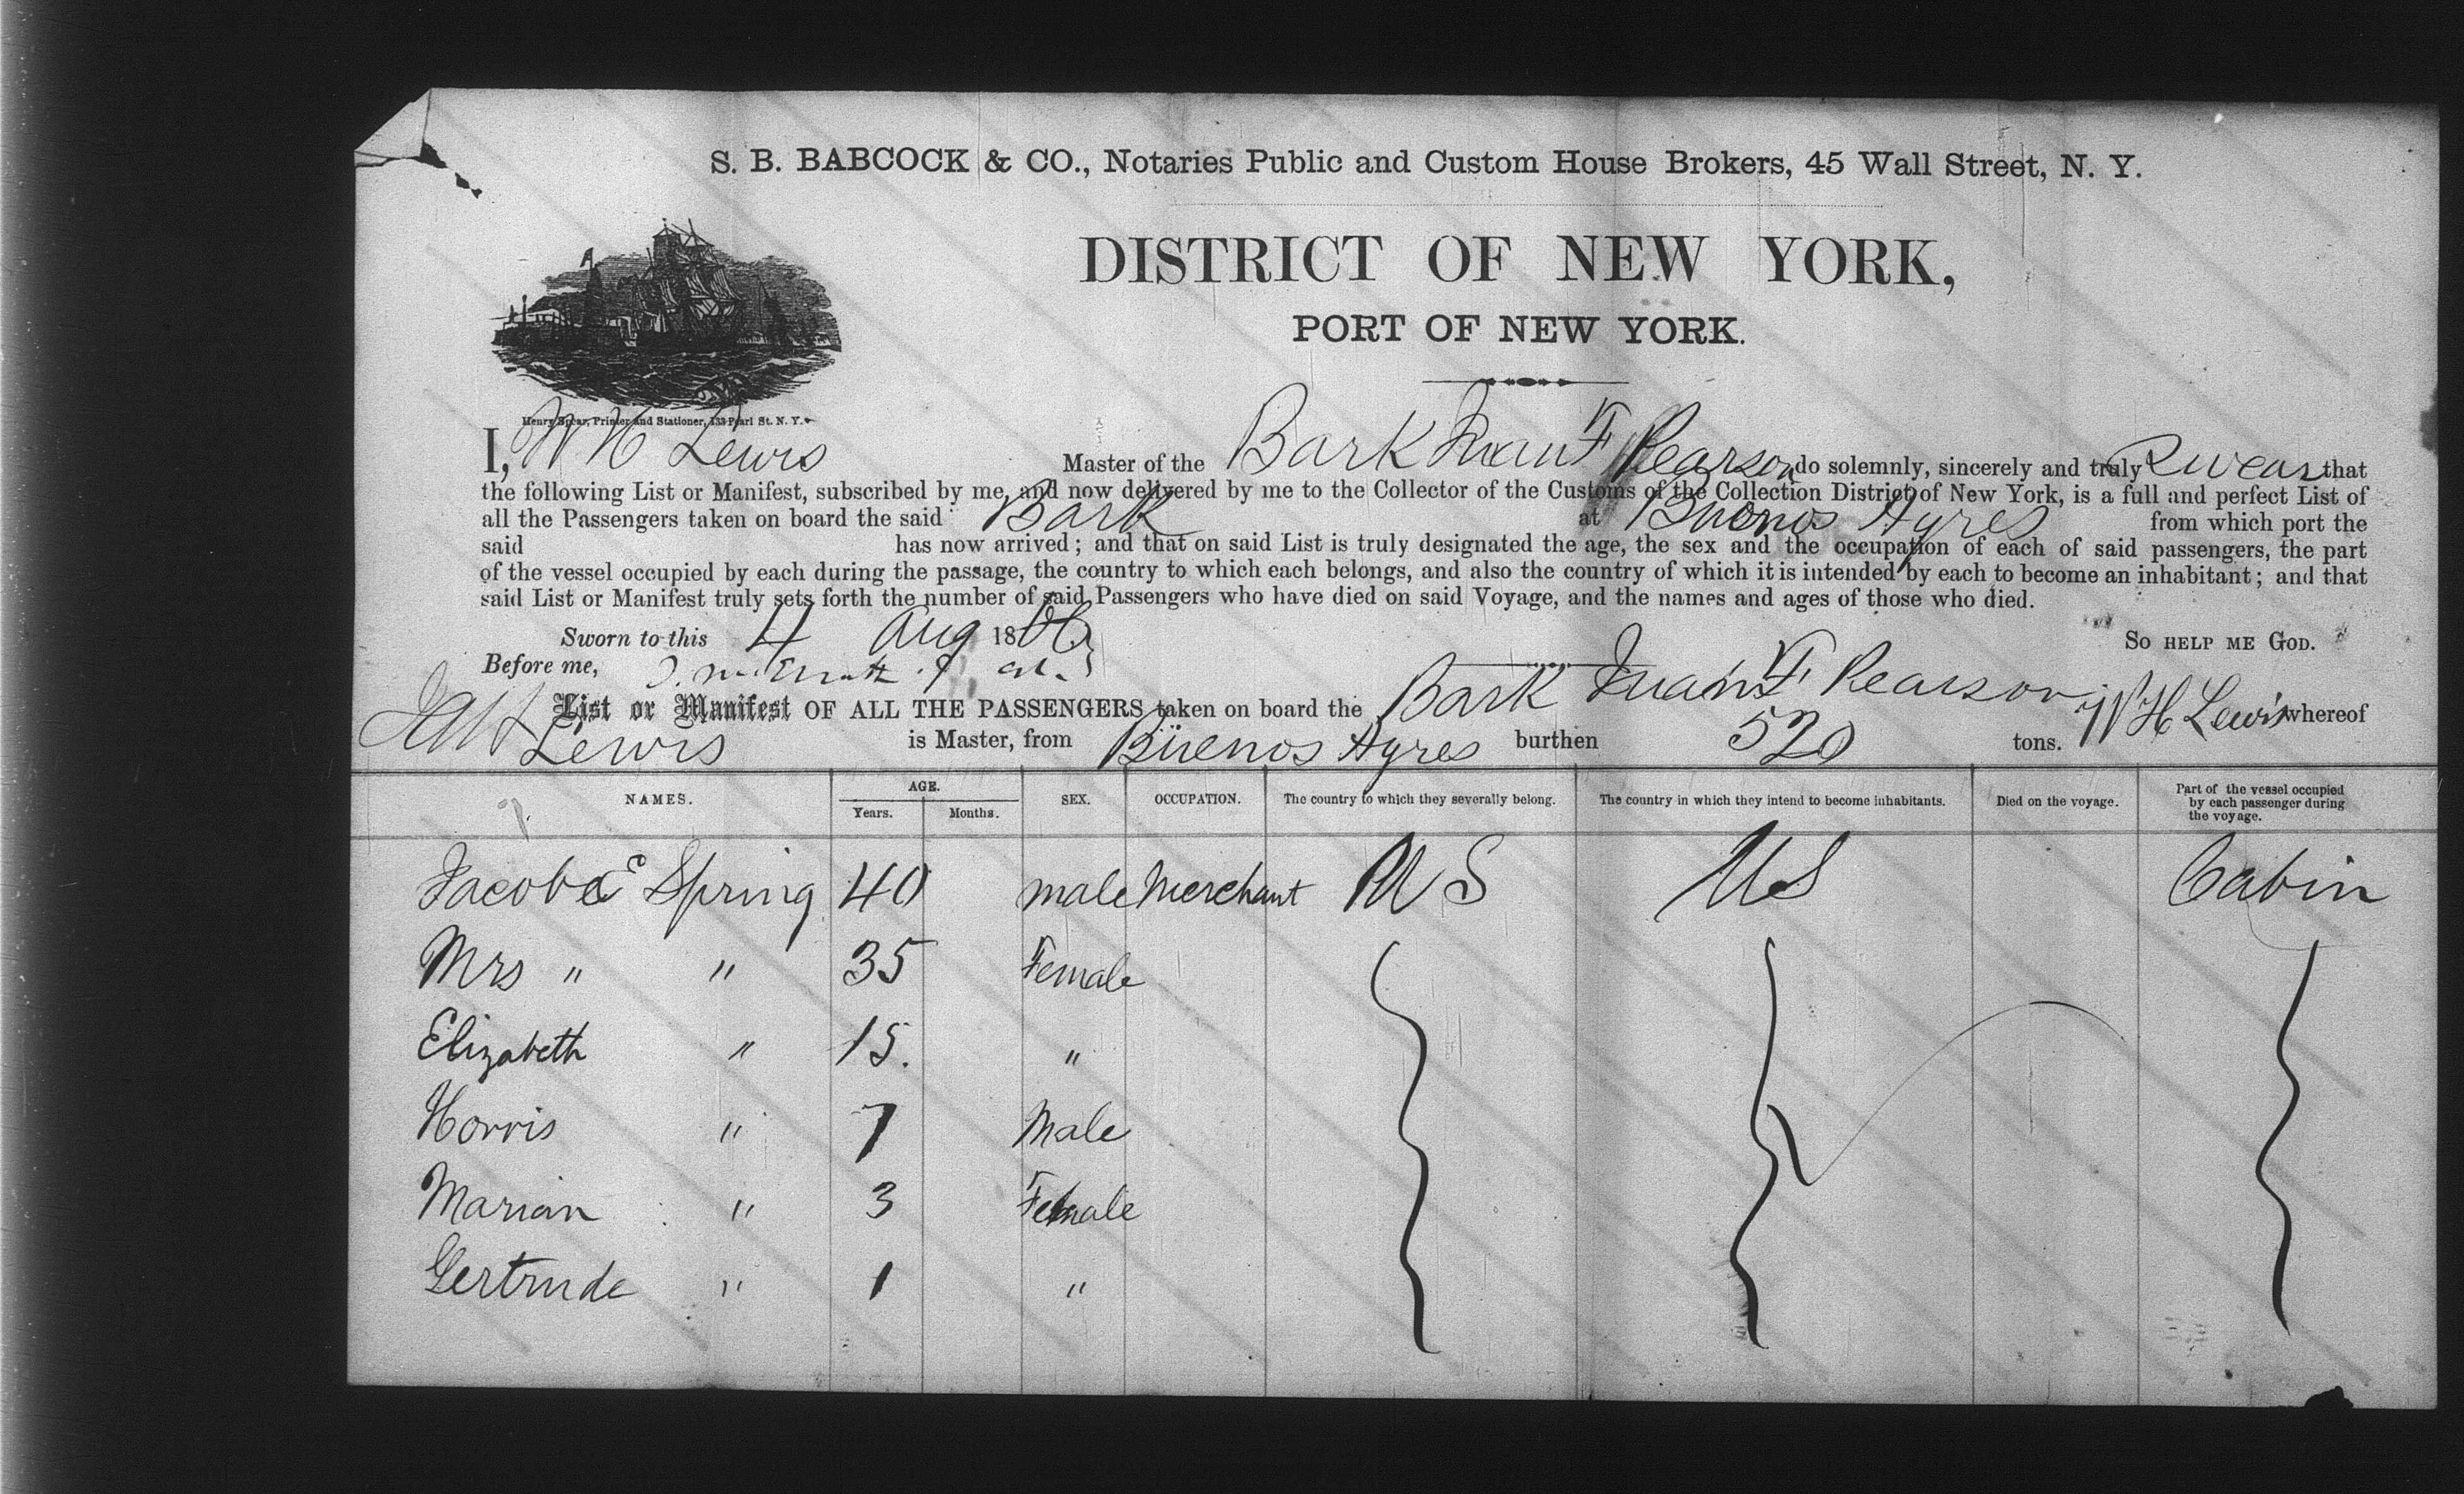 S. B. BABCOCK & CO., Notaries Public and Custom House Brokers, 45 Wall Street, N. Y.
DISTRICT OF NEW YORK,
PORT OF NEW YORK.
Henry Spear, Printer and Stationer, 133 Pearl St. N. Y.
I, W H Lewis Master of the Bark Juan F Pearson do solemnly, sincerely and truly Swear that
the following List or Manifest, subscribed by me, and now delivered by me to the Collector of the Customs of the Collection District of New York, is a full and perfect List of
all the Passengers taken on board the said Bark at Buenos Ayres from which port the
said has now arrived; and that on said List is truly designated the age, the sex and the occupation of each of said passengers, the part
of the vessel occupied by each during the passage, the country to which each belongs, and also the country of which it is intended by each to become an inhabitant; and that
said List or Manifest truly sets forth the number of said Passengers who have died on said Voyage, and the names and ages of those who died.
Sworn to this 4 Aug 1866 So HELP ME GOD.
Before me,
List or Manifest OF ALL THE PASSENGERS taken on board the Bark Juan F Pearson W H Lewis whereof
Lewis is Master, from Buenos Ayres burthen 520 tons.
NAMES. AGE. Years. Months. SEX. OCCUPATION. The country to which they severally belong. The country in which they intend to become inhabitants. Died on the voyage. Part of the vessel occupied by each passenger during the voyage.
Jacob E Spring 40 male Merchant U S U S Cabin
Mrs " " 35 Female
Elizabeth " 15. "
Norris " 7 Male
Marian " 3 Female
Gertrude " 1 "